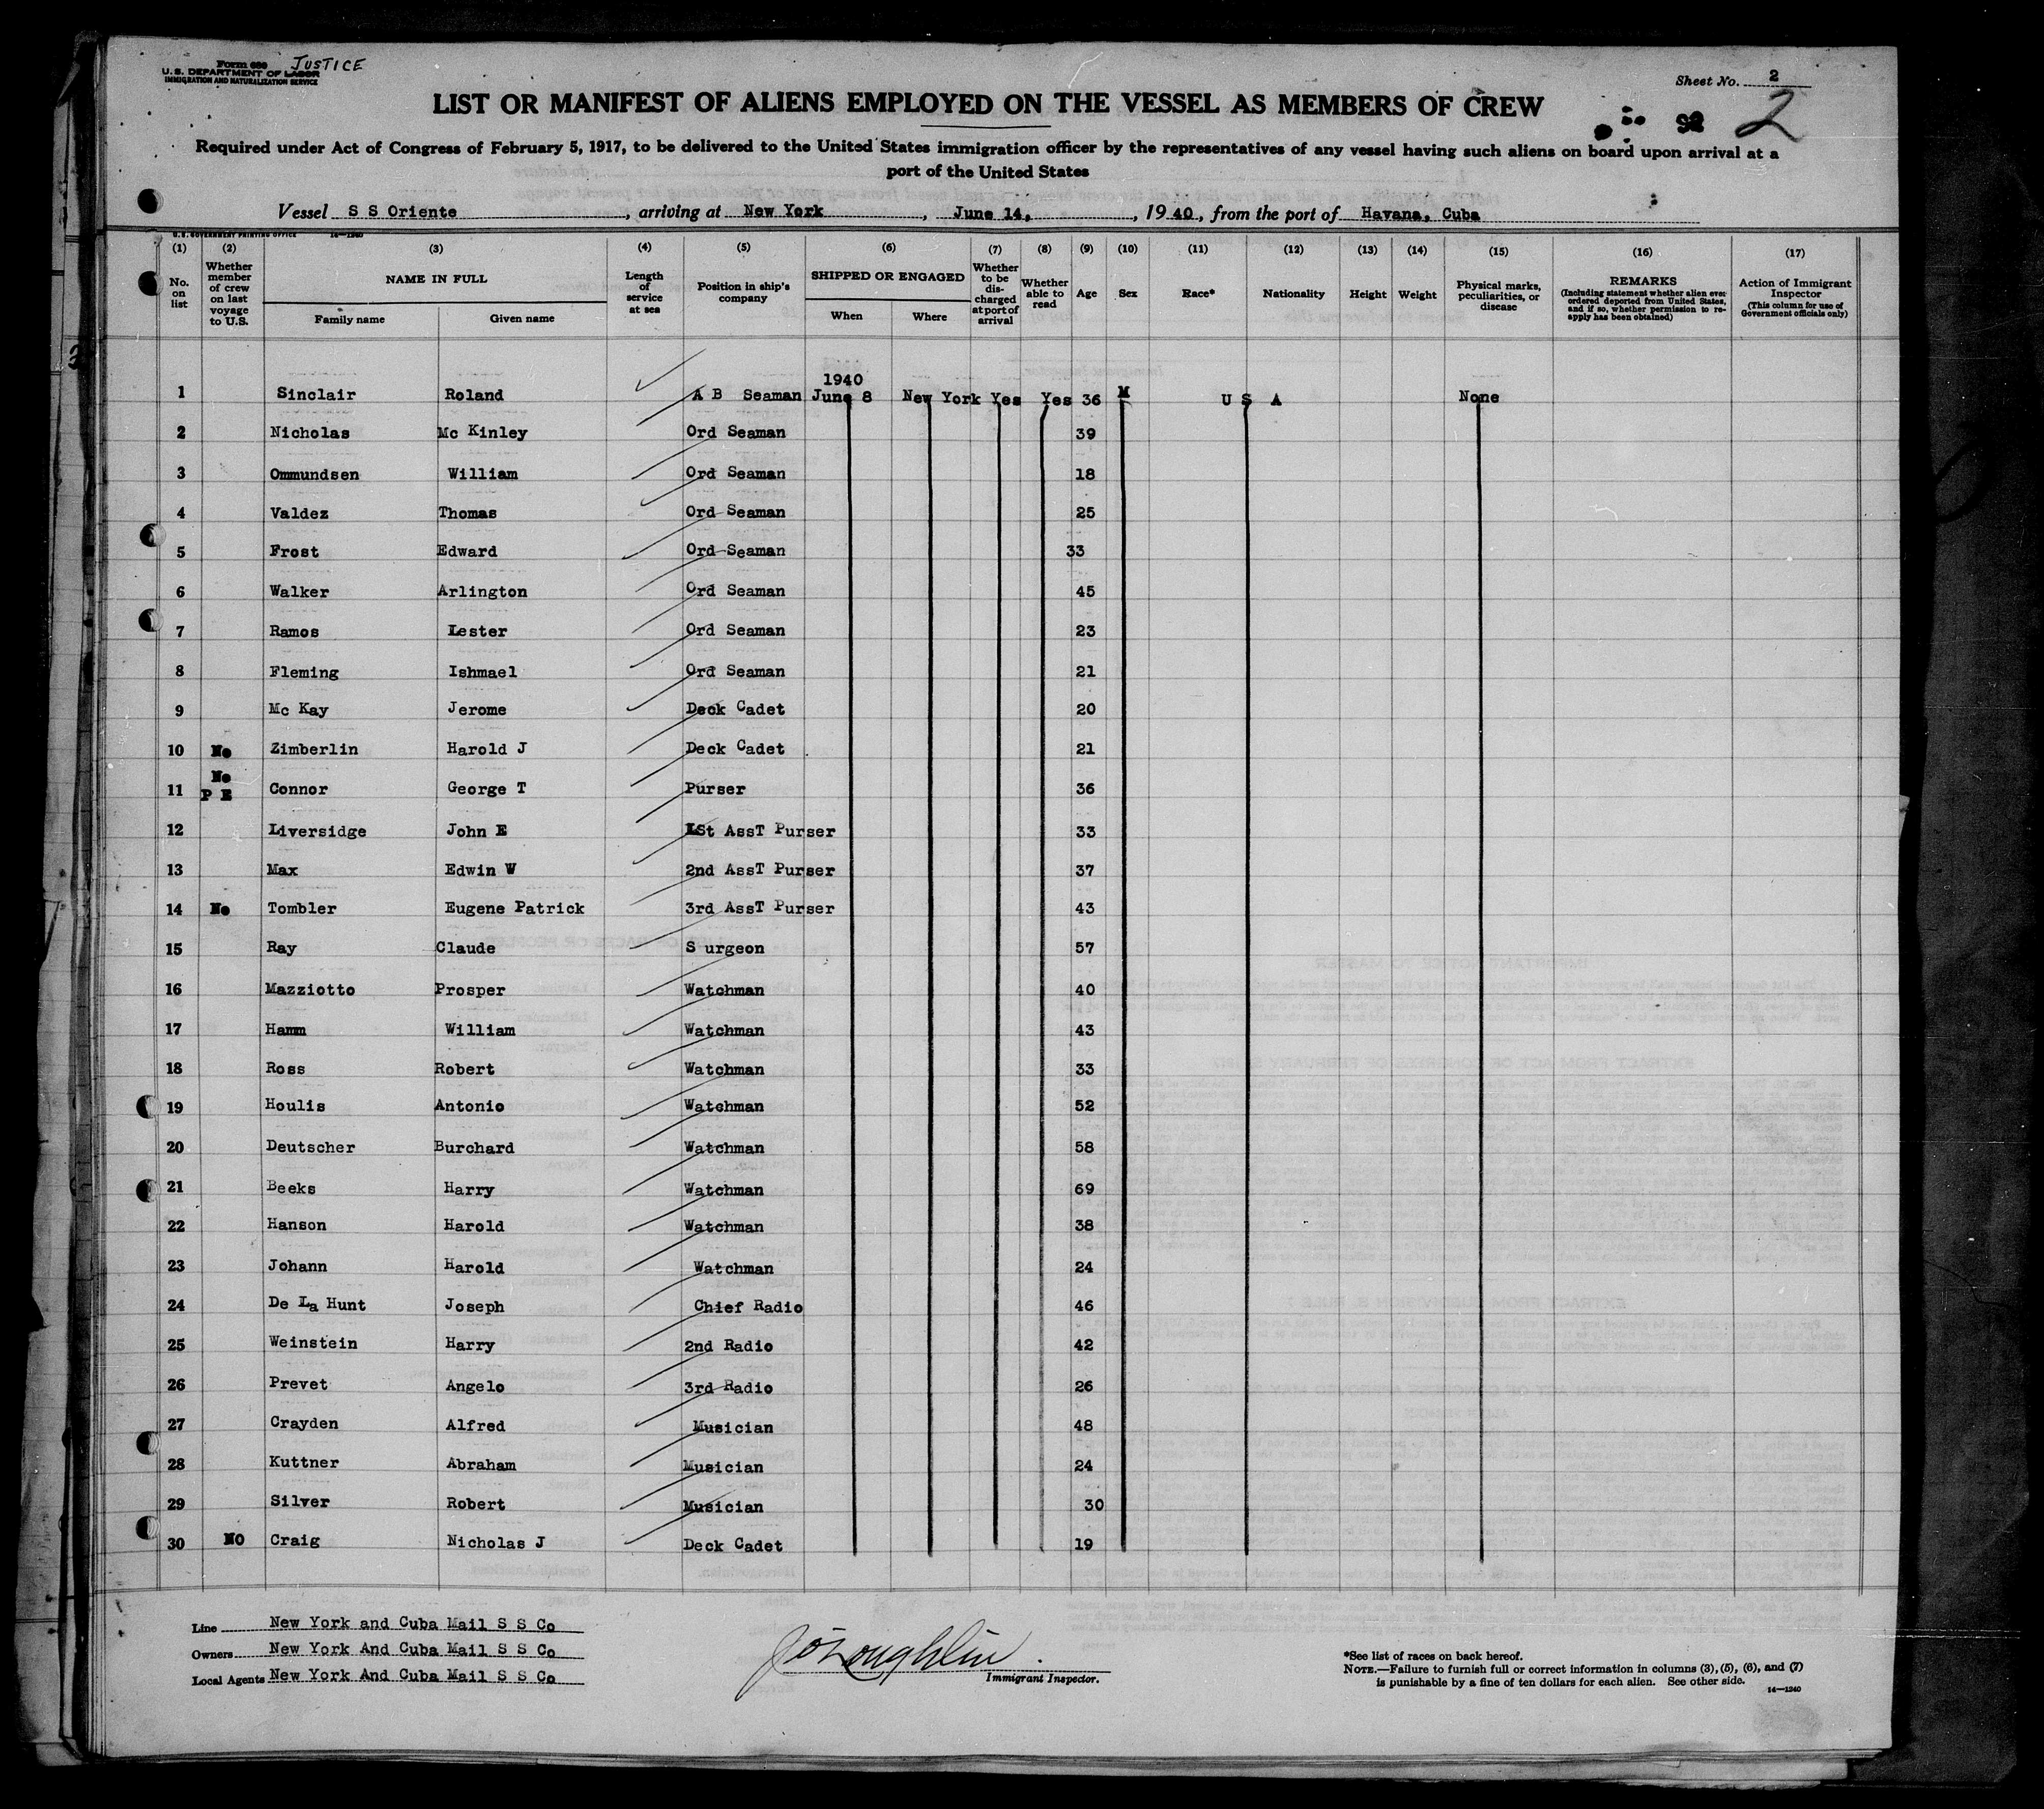 Form 680 JUSTICE
U. S. DEPARTMENT OF LABOR
IMMIGRATION AND NATURALIZATION SERVICE
Sheet No. 2
2
LIST OR MANIFEST OF ALIENS EMPLOYED ON THE VESSEL AS MEMBERS OF CREW
Required under Act of Congress of February 5, 1917, to be delivered to the United States immigration officer by the representatives of any vessel having such aliens on board upon arrival at a
port of the United States
Vessel S S Oriente, arriving at New York, June 14, 1940, from the port of Havana, Cuba
U. S. GOVERNMENT PRINTING OFFICE 14—1240
(1) (2) (3) (4) (5) (6) (7) (8) (9) (10) (11) (12) (13) (14) (15) (16) (17)
No. on list
Whether member of crew on last voyage to U.S.
NAME IN FULL
Family name Given name
Length of service at sea
Position in ship's company
SHIPPED OR ENGAGED
When Where
Whether to be discharged at port of arrival
Whether able to read
Age Sex Race* Nationality Height Weight
Physical marks, peculiarities, or disease
REMARKS
(Including statement whether alien ever ordered deported from United States, and if so, whether permission to reapply has been obtained)
Action of Immigrant Inspector
(This column for use of Government officials only)
1940
1 Sinclair Roland A B Seaman June 8 New York Yes Yes 36 M U S A None
2 Nicholas Mc Kinley Ord Seaman 39
3 Ommundsen William Ord Seaman 18
4 Valdez Thomas Ord Seaman 25
5 Frost Edward Ord Seaman 33
6 Walker Arlington Ord Seaman 45
7 Ramos Lester Ord Seaman 23
8 Fleming Ishmael Ord Seaman 21
9 Mc Kay Jerome Deck Cadet 20
10 No Zimberlin Harold J Deck Cadet 21
11 No P E Connor George T Purser 36
12 Liversidge John E 1St AssT Purser 33
13 Max Edwin W 2nd AssT Purser 37
14 No Tombler Eugene Patrick 3rd AssT Purser 43
15 Ray Claude S urgeon 57
16 Mazziotto Prosper Watchman 40
17 Hamm William Watchman 43
18 Ross Robert Watchman 33
19 Houlis Antonio Watchman 52
20 Deutscher Burchard Watchman 58
21 Beeks Harry Watchman 69
22 Hanson Harold Watchman 38
23 Johann Harold Watchman 24
24 De La Hunt Joseph Chief Radio 46
25 Weinstein Harry 2nd Radio 42
26 Prevet Angelo 3rd Radio 26
27 Crayden Alfred Musician 48
28 Kuttner Abraham Musician 24
29 Silver Robert Musician 30
30 NO Craig Nicholas J Deck Cadet 19
Line New York and Cuba Mail S S Co
Owners New York And Cuba Mail S S Co
Local Agents New York And Cuba Mail S S Co
J O'Loughlin
Immigrant Inspector.
*See list of races on back hereof.
NOTE.—Failure to furnish full or correct information in columns (3), (5), (6), and (7)
is punishable by a fine of ten dollars for each alien. See other side.
14—1240